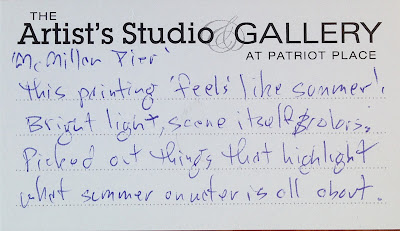 THE
Artist's Studio & GALLERY
AT PATRIOT PLACE
'McMillan Pier'
This painting 'feels' like summer'.
Bright light, scene itself, colors.
Picked out things that highlight
what summer on water is all about.